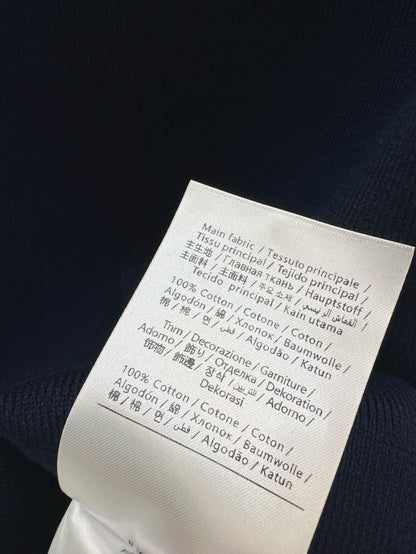 Main fabric / Tessuto principale /
Tissu principal / Tejido principal /
主生地 / Главная ткань / Hauptstoff /
主面料 / 主面料 / 주요 소재 / القماش الرئيسي /
Tecido principal / Kain utama
100% Cotton / Cotone / Coton /
Algodón / 綿 / Хлопок / Baumwolle /
棉 / 棉 / 면 / قطن / Algodão / Katun
Trim / Decorazione / Garniture /
Adorno / 飾り / Отделка / Dekoration /
饰物 / 飾邊 / 장식 / التزيين / Adorno /
Dekorasi
100% Cotton / Cotone / Coton /
Algodón / 綿 / Хлопок / Baumwolle /
棉 / 棉 / 면 / قطن / Algodão / Katun